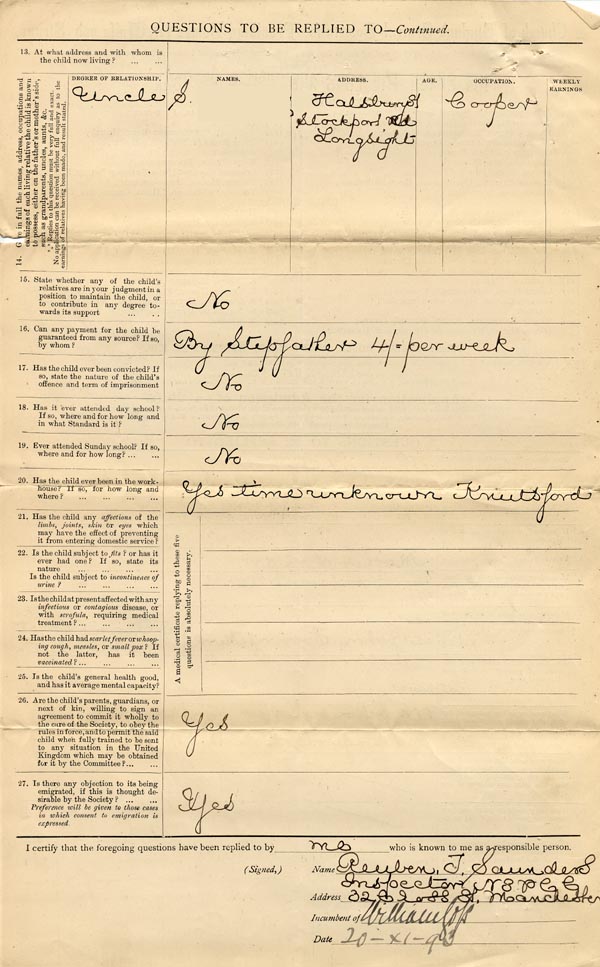 QUESTIONS TO BE REPLIED TO—Continued.
13. At what address and with whom is
the child now living? ... ...
14. Give in full the names, address, occupations and
earnings of each living relative the child is known
to possess, either on the father's or mother's side,
such as grandparents, uncles, aunts, &c.
*** Replies to this question must be very full and exact.
No application can be received without full enquiry as to the
earnings of relatives having been made, and result stated.
DEGREE OF RELATIONSHIP. NAMES. ADDRESS. AGE. OCCUPATION. WEEKLY
EARNINGS
Uncle S. Halsbury St Cooper
Stockport Rd
Longsight
15. State whether any of the child's
relatives are in your judgment in a
position to maintain the child, or
to contribute in any degree to-
wards its support ... ...
No
16. Can any payment for the child be
guaranteed from any source? If so,
by whom?
By Stepfather 4/= per week
17. Has the child ever been convicted? If
so, state the nature of the child's
offence and term of imprisonment
No
18. Has it ever attended day school?
If so, where and for how long and
in what Standard is it?
No
19. Ever attended Sunday school? If so,
where and for how long? ... ...
No
20. Has the child ever been in the work-
house? If so, for how long and
where? ... ... ...
Yes time unknown Knutsford
21. Has the child any affections of the
limbs, joints, skin or eyes which
may have the effect of preventing
it from entering domestic service?
22. Is the child subject to fits? or has it
ever had one? If so, state its
nature ... ... ... ...
Is the child subject to incontinence of
urine? ... ... ... ...
23. Is the child at present affected with any
infectious or contagious disease, or
with scrofula, requiring medical
treatment? ... ... ...
24. Has the child had scarlet fever or whoop-
ing cough, measles, or small pox? If
not the latter, has it been
vaccinated? ... ... ...
25. Is the child's general health good,
and has it average mental capacity?
A medical certificate replying to these five
questions is absolutely necessary.
26. Are the child's parents, guardians, or
next of kin, willing to sign an
agreement to commit it wholly to
the care of the Society, to obey the
rules in force, and to permit the said
child when fully trained to be sent
to any situation in the United
Kingdom which may be obtained
for it by the Committee? ... ...
Yes
27. Is there any objection to its being
emigrated, if this is thought de-
sirable by the Society? ... ...
Preference will be given to those cases
in which consent to emigration is
expressed.
Yes
I certify that the foregoing questions have been replied to by me who is known to me as a responsible person.
(Signed,) Name Reuben. T. Saunders
Inspector N S P C C
Address 32 St. Manchester
Incumbent of William
Date 20-XI-93